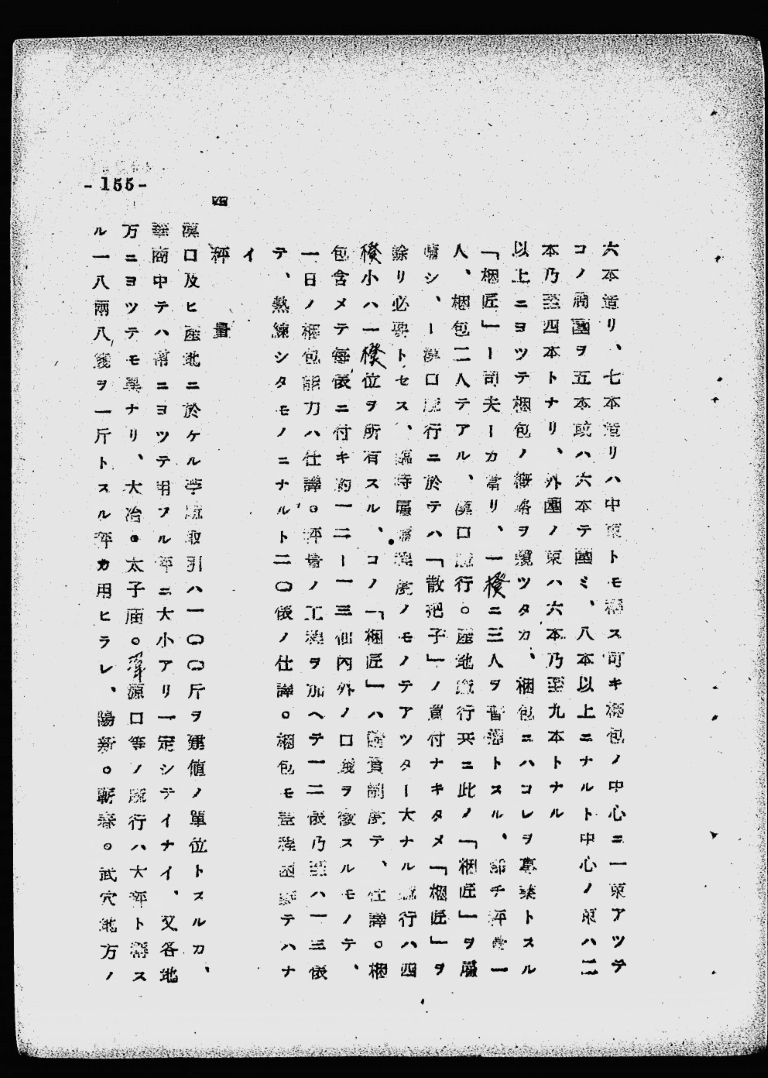 六本造リ、七本造リハ中束トモ稱ス可キ梱包ノ中心ニ一束アツテ
コノ周圍ヲ五本或ハ六本テ圍ミ、八本以上ニナルト中心ノ束ハ二
本乃至四本トナリ、外圍ノ束ハ六本乃至九本トナル
以上ニヨツテ梱包ノ概略ヲ覽ツタカ、梱包ニハコレヲ專業トスル
「梱匠」ー司夫ーカ當リ、一檨ニ三人ヲ普通トスル、卽チ秤量一
人、梱包二人テアル、漢口行。產地行共ニ此ノ「梱匠」ヲ雇
傭シ、ー漢口行ニ於テハ「散把子」ノ買付ナキタメ「梱匠」ヲ
餘リ必要トセス、臨時雇傭程度ノモノテアツターナル行ハ四
檨小ハ一檨位ヲ所有スル、コノ「梱匠」ハ請負制度テ、仕譯。梱
包含メテ每俵ニ付キ約一二ー一三仙內外ノ口錢ヲ徵スルモノテ、
一日ノ梱包能力ハ仕譯。秤量ノ工程ヲ加ヘテ一二俵乃至ハ一三俵
テ、熟練シタモノニナルト二〇俵ノ仕譯。梱包モ困難テハナ
イ
四 秤量
漢口及ヒ產地ニ於ケル苧取引ハ一〇〇斤ヲ建値ノ單位トスルカ、
華商中テハ幇ニヨツテ用フル秤ニ大小アリ一定シテイナイ、又各地
方ニヨツテモ異ナリ、大冶。太子廟。源口等ノ行ハ大秤ト稱ス
ル一八兩八錢ヲ一斤トスル秤カ用ヒラレ、陽新。蘄春。武穴地方ノ
-155-